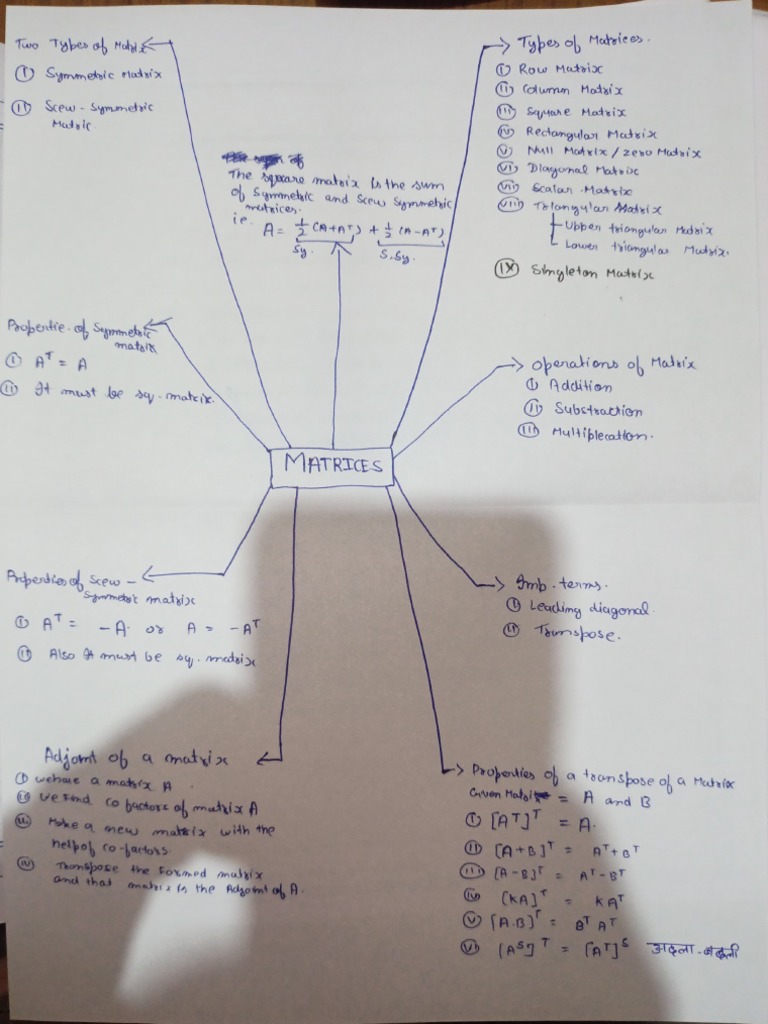 Two Types of Matrix
(i) Symmetric Matrix
(ii) Scew-Symmetric
Matric
Types of Matrices.
(i) Row Matrix
(ii) Column Matrix
(iii) Square Matrix
(iv) Rectangular Matrix
(v) Null Matrix / zero Matrix
(vi) Diagonal Matrix
(vii) Scalar Matrix
(viii) Triangular Matrix
Upper triangular Matrix
Lower triangular Matrix.
(ix) Singleton Matrix
The square matrix is the sum
of symmetric and Scew symmetric
matrices.
i.e. A = 1/2 (A+Aᵀ) + 1/2 (A-Aᵀ)
Sy. S.Sy.
Propertie of Symmetric
matrix
(i) Aᵀ = A
(ii) It must be sq. matrix.
Operations of Matrix
(i) Addition
(ii) Substraction
(iii) Multiplecation.
MATRICES
Properties of Scew-
Symmetric matrix
(i) Aᵀ = -A. or A = -Aᵀ
(ii) Also It must be sq. matrix
Imp. terms.
(i) Leading diagonal.
(ii) Transpose.
Adjoint of a matrix
(i) we have a matrix A
(ii) we find co factors of matrix A
(iii) Make a new matrix with the
help of co-factors.
(iv) Transpose the formed matrix
and that matrix is the Adjoint of A.
Properties of a transpose of a Matrix
Given Matrix = A and B
(i) [Aᵀ]ᵀ = A.
(ii) [A+B]ᵀ = Aᵀ+Bᵀ
(iii) [A-B]ᵀ = Aᵀ-Bᵀ
(iv) [KA]ᵀ = KAᵀ
(v) [A.B]ᵀ = Bᵀ Aᵀ
(vi) [Aˢ]ᵀ = [Aᵀ]ˢ अदला-बदली